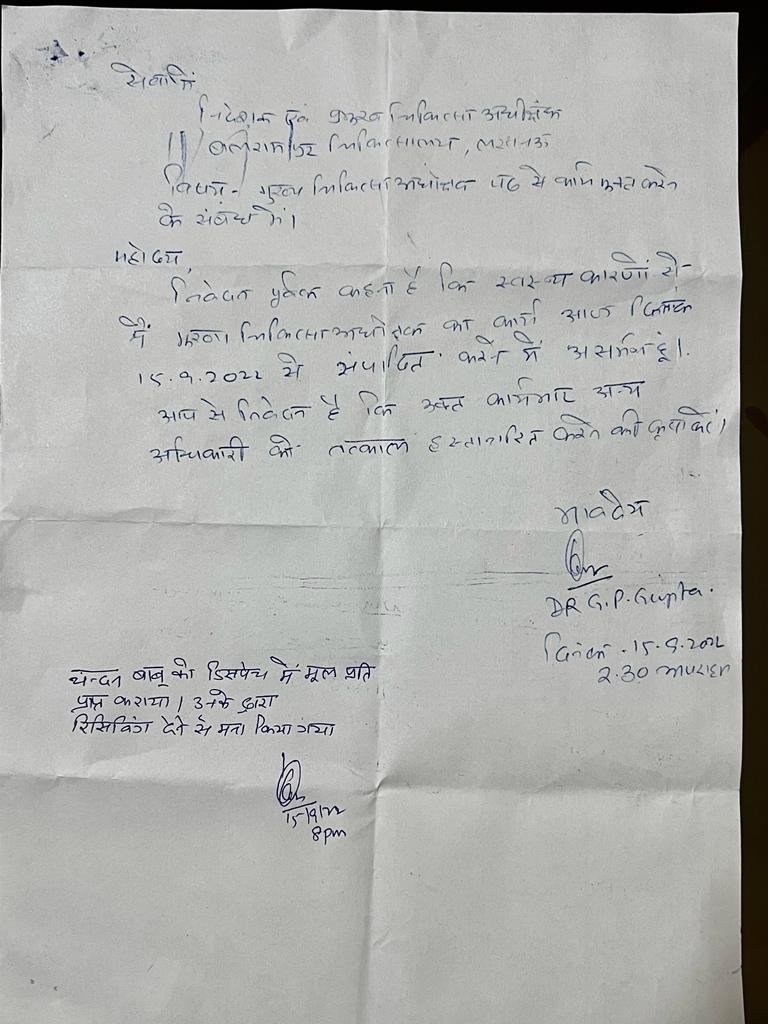 सेवा में
निदेशक एवं प्रमुख चिकित्सा अधीक्षक
बलरामपुर चिकित्सालय, लखनऊ
विषय - मुख्य चिकित्सा अधीक्षक पद से कार्य मुक्त करने
के संबंध में।
महोदय,
निवेदन पूर्वक कहना है कि स्वास्थ्य कारणों से
मैं मुख्य चिकित्सा अधीक्षक का कार्य आज दिनांक
15.9.2022 से संपादित करने में असमर्थ हूं।
आप से निवेदन है कि उक्त कार्यभार अन्य
अधिकारी को तत्काल हस्तान्तरित करने की कृपा करें।
भवदीय
DR G.P. Gupta.
दिनांक . 15.9.2022
2.30 अपराह्न
चन्दन बाबू को डिसपैच में मूल प्रति
प्राप्त कराया। उनके द्वारा
रिसिविंग देने से मना किया गया
15/9/22
8pm